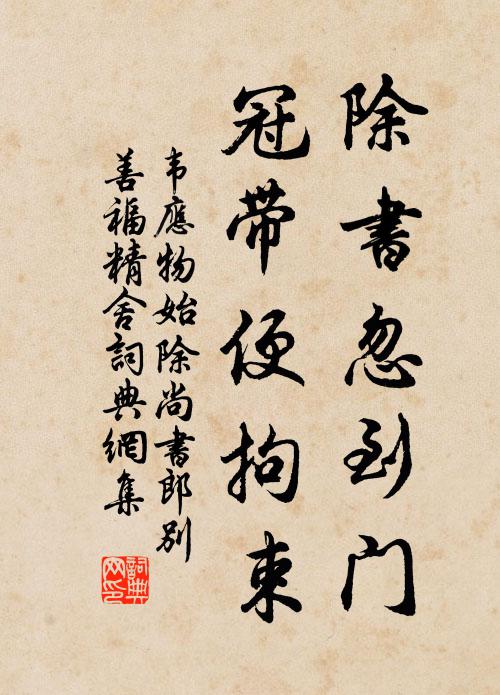 除書忽到门
冠带便拘束
韦應物始除尚書郎别
善福精舍詞典網集
詞典网印